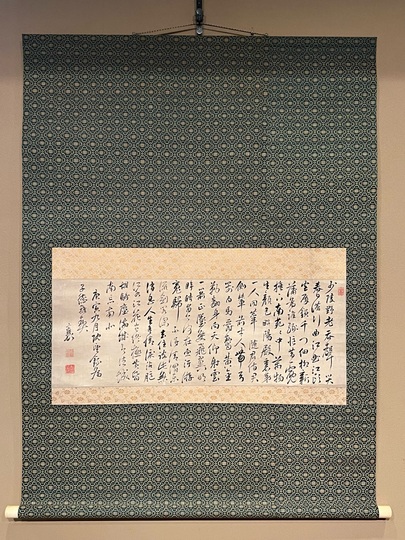 少陵野老吞聲哭
春日潛行曲江曲江頭
宮殿鎖千門細柳新
蒲為誰綠憶昔霓旌
下南苑苑中萬物
生顏色昭陽殿裏第
一人同輦隨君侍君
側輦前才人帶弓
箭白馬嚼齧黃金
勒翻身向天仰射雲
一箭正墜雙飛翼明
眸皓齒今何在血污遊
魂歸不得清渭東流
劍閣深去住彼此無消
息人生有情淚沾臆
江水江花豈終極黃昏
胡騎塵滿城欲往城
南忘南北
庚寅六月